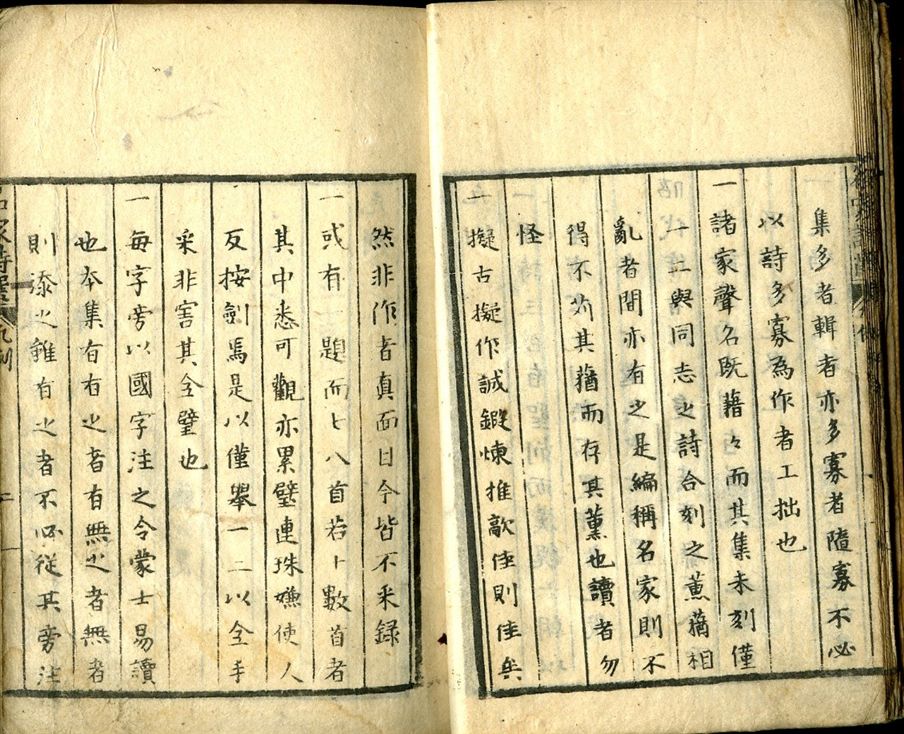 集多者輯者亦多寡者隨寡不必
以詩多寡為作者工拙也
一諸家聲名既藉々而其集未刻僅
一二與同志之詩合刻之薰蕕相
亂者間亦有之是編稱名家則不
得不芟其蕕而存其薰也讀者勿
怪
一擬古擬作誠鍛煉推敲佳則佳矣
然非作者真面目今皆不采録
一或有一題而七八首若十數首者
其中悉可觀亦累璧連珠嫌使人
反按劍焉是以僅舉一二以全手
采非害其全璧也
一每字旁以國字注之令蒙士易讀
也本集有之者有無之者無者
則添之雖有之者不必從其旁注
名家詩選 凡例 二